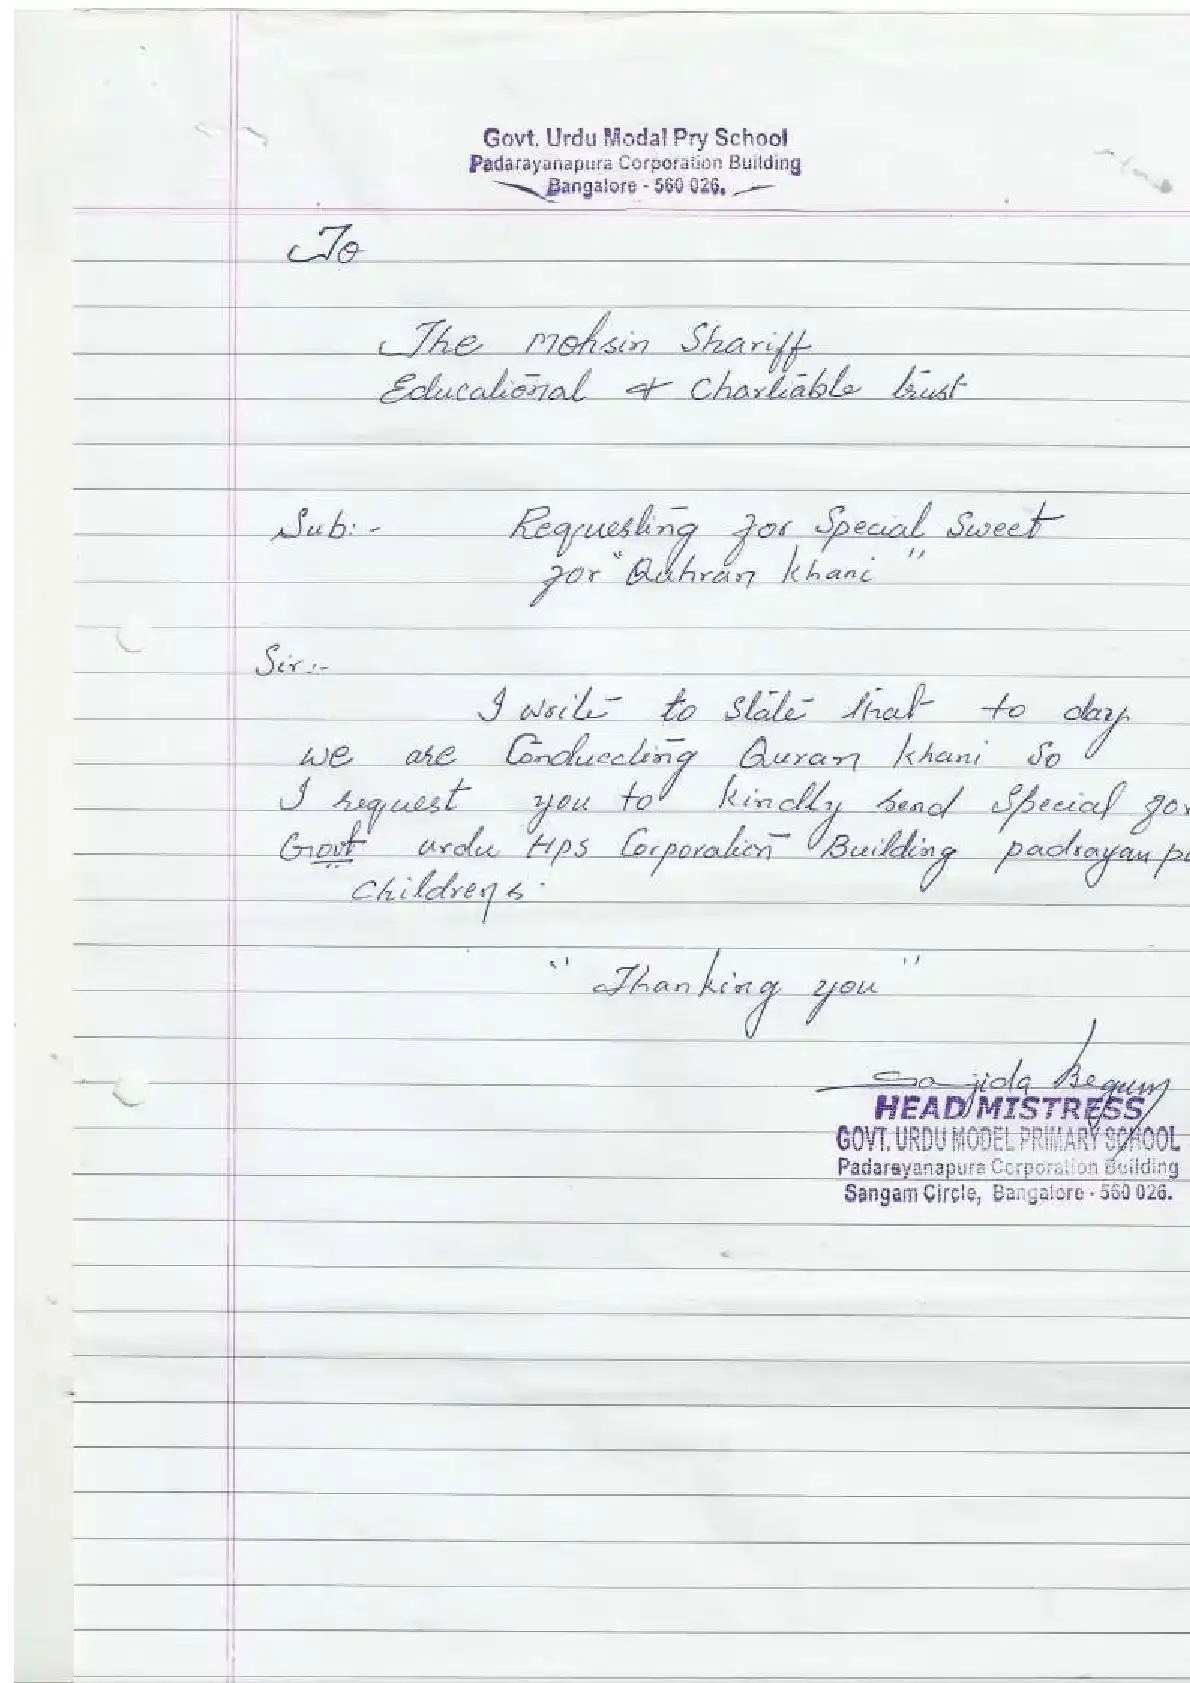 Govt. Urdu Modal Pry School
Padarayanapura Corporation Building
Bangalore - 560 026.
To
The Mohsin Shariff
Educational & Charitable trust
Sub:- Requesting for Special Sweet
for "Quhran Khani"
Sir:-
I write to state that to day
we are Conduccting Quran Khani So
I request you to kindly send Special for
Govt urdu HPS Corporation Building padrayanpu
childrens.
"Thanking you"
Sajida Begum
HEAD MISTRESS
GOVT. URDU MODEL PRIMARY SCHOOL
Padarayanapura Corporation Building
Sangam Circle, Bangalore - 560 026.